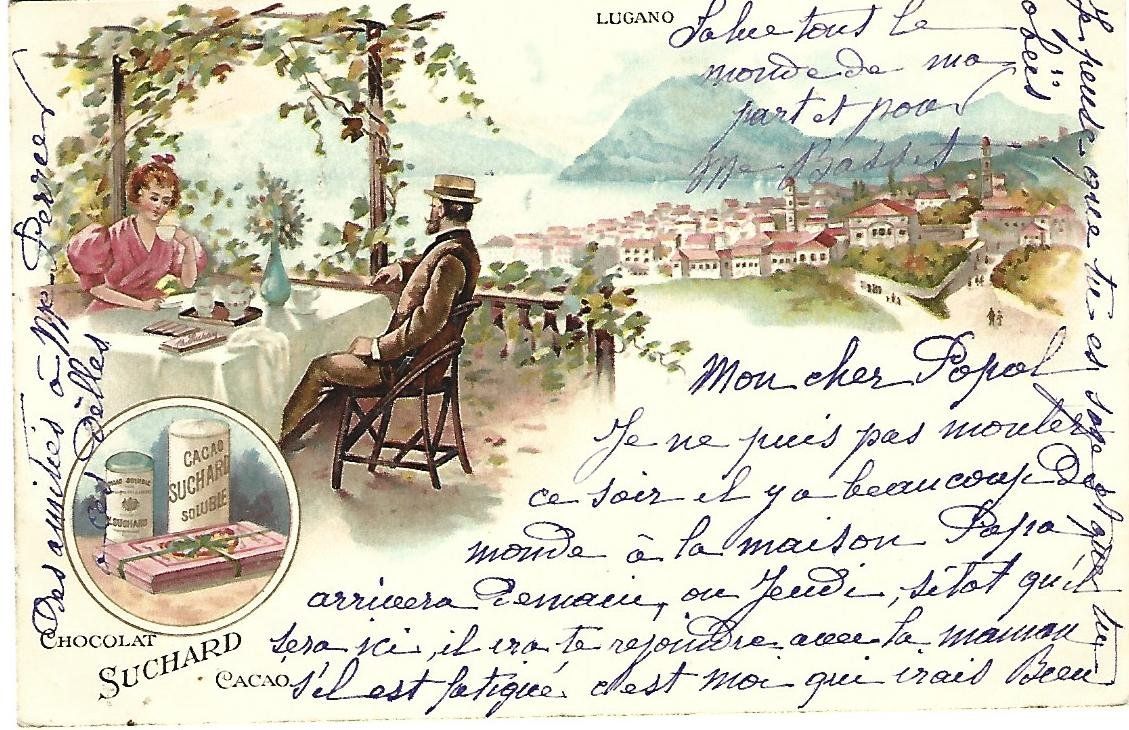 LUGANO
Salue tout le
monde de ma
part et pour
Me Basset
Mon cher Popol
Je ne puis pas monter
ce soir il y a beaucoup de
monde à la maison Papa
arrivera Demain, ou Jeudi, sitot qu'il
sera ici, il ira te rejoindre avec la maman
s'il est fatigué c'est moi qui irais
Je pense que tu es sage et que tu
obéis
Des amitiés à Me Perrier
à ces Delles
CACAO
SUCHARD
SOLUBLE
CACAO SOLUBLE
SUCHARD
CHOCOLAT
SUCHARD
CACAO